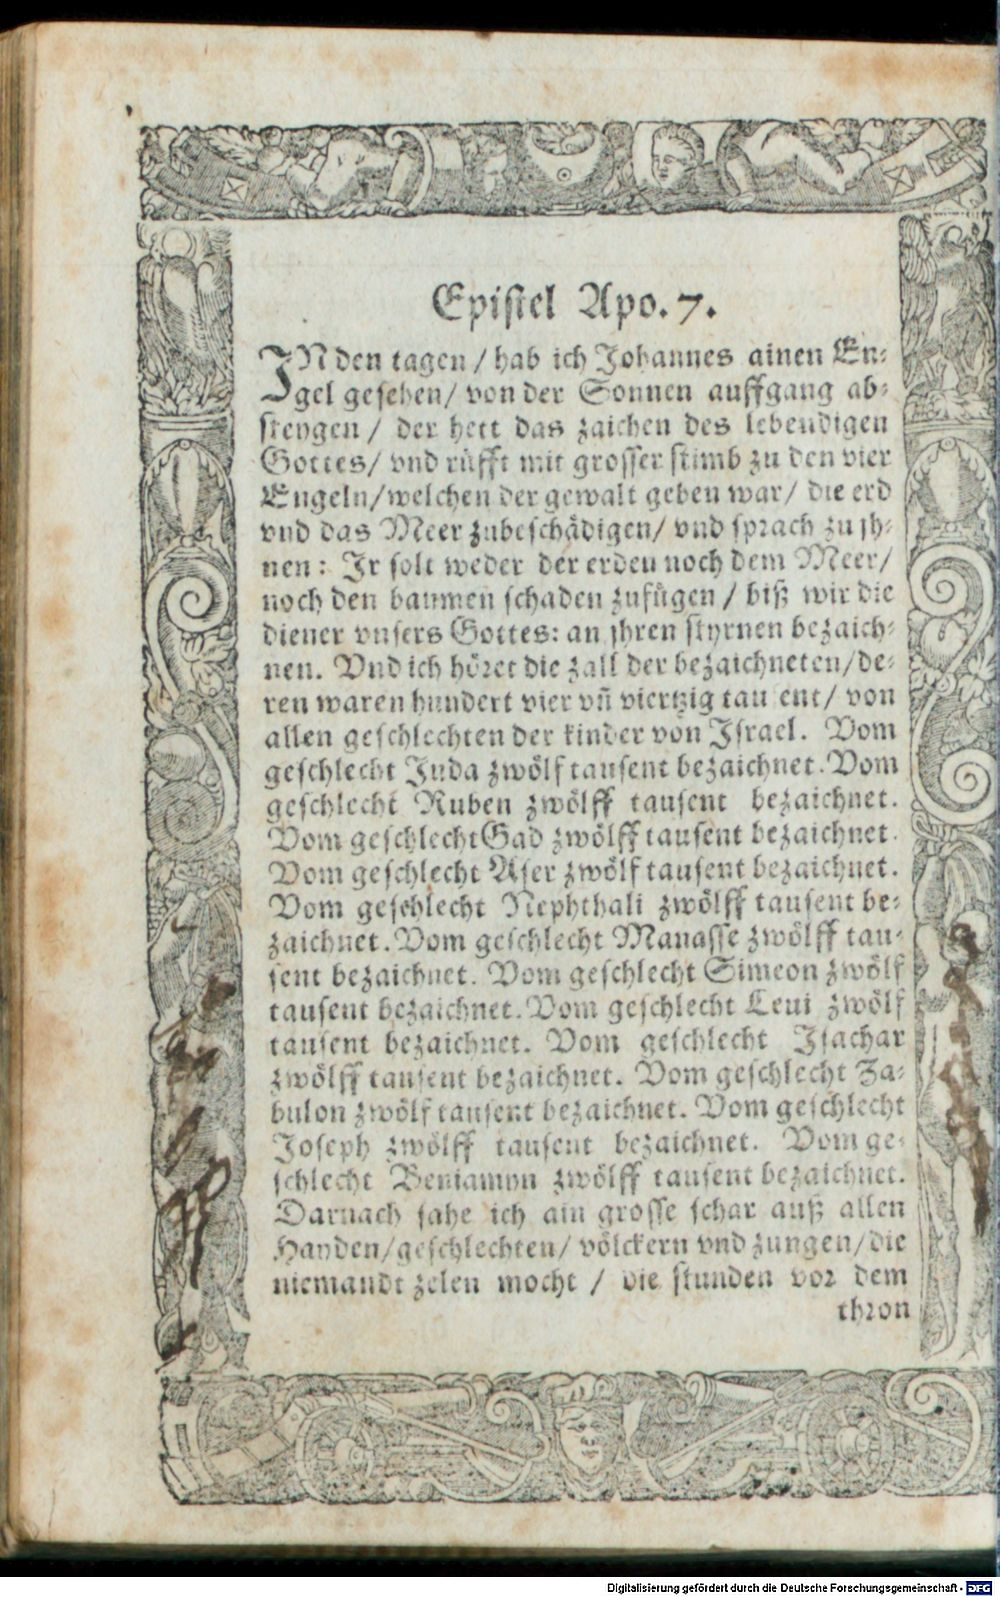 Epistel Apo. 7.
IN den tagen / hab ich Johannes ainen En-
gel gesehen / von der Sonnen auffgang ab-
steygen / der hett das zaichen des lebendigen
Gottes / vnd rüfft mit grosser stimb zu den vier
Engeln / welchen der gewalt geben war / die erd
vnd das Meer zubeschädigen / vnd sprach zu jh-
nen: Ir solt weder der erden noch dem Meer /
noch den baumen schaden zufügen / biß wir die
diener vnsers Gottes: an jhren styrnen bezaich-
nen. Vnd ich höret die zall der bezaichneten / de-
ren waren hundert vier vñ viertzig tau ent / von
allen geschlechten der kinder von Israel. Vom
geschlecht Juda zwölf tausent bezaichnet. Vom
geschlecht Ruben zwölff tausent bezaichnet.
Vom geschlecht Gad zwölff tausent bezaichnet.
Vom geschlecht Aser zwölf tausent bezaichnet.
Vom geschlecht Nephthali zwölff tausent be-
zaichnet. Vom geschlecht Manasse zwölff tau-
sent bezaichnet. Vom geschlecht Simeon zwölf
tausent bezaichnet. Vom geschlecht Leui zwölf
tausent bezaichnet. Vom geschlecht Isachar
zwölff tausent bezaichnet. Vom geschlecht Za-
bulon zwölf tausent bezaichnet. Vom geschlecht
Joseph zwölff tausent bezaichnet. Vom ge-
schlecht Beniamyn zwölff tausent bezaichnet.
Darnach sahe ich ain grosse schar auß allen
Hayden / geschlechten / völckern vnd zungen / die
niemandt zelen mocht / die stunden vor dem
thron
Digitalisierung gefördert durch die Deutsche Forschungsgemeinschaft - DFG